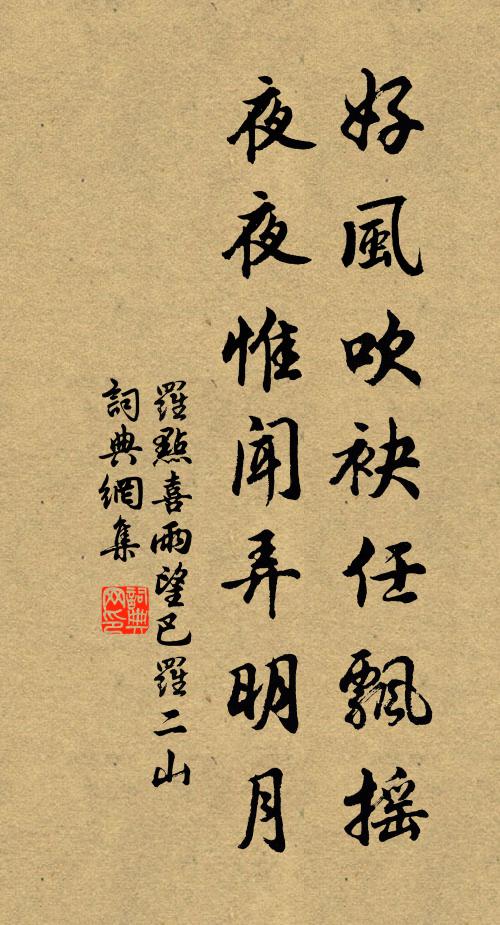 好風吹袂任飄搖
夜夜惟聞弄明月
羅點喜雨望巴羅二山
詞典網集
詞典
网印